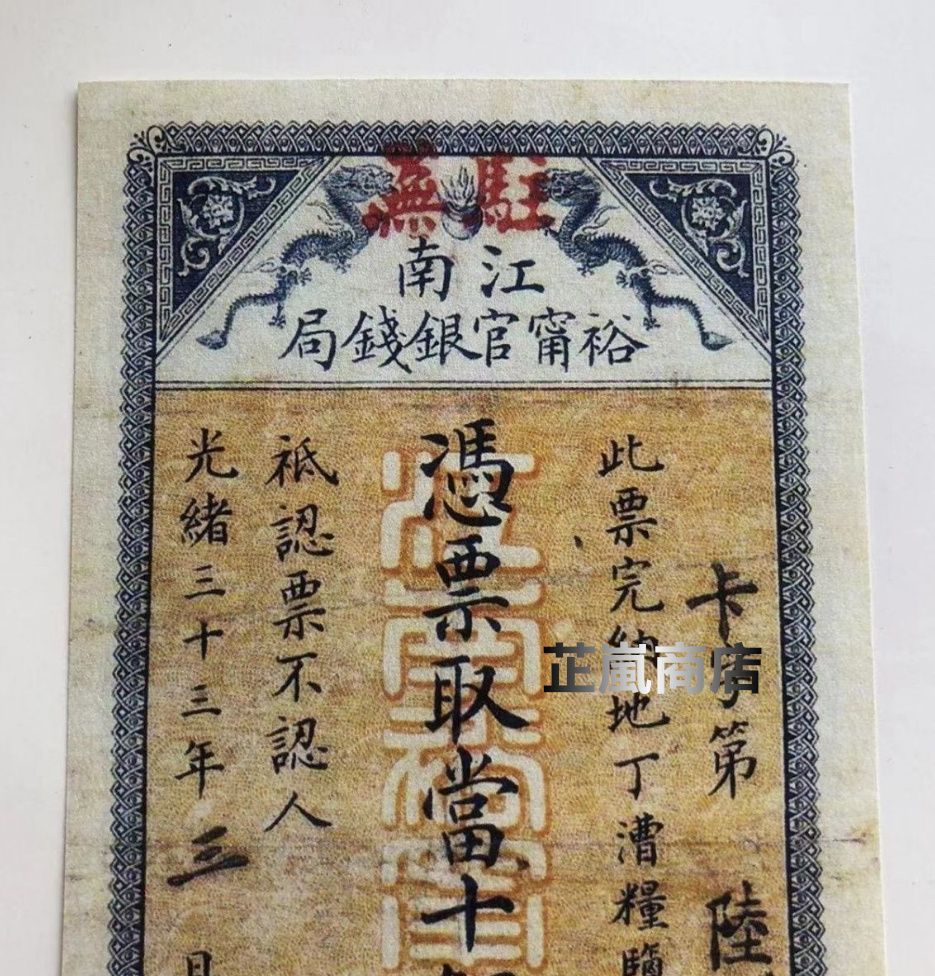 駐蕪
江南
裕甯官銀錢局
卡字第陸
此票完納地丁漕糧
憑票取當十
祗認票不認人
光緒三十三年三月
芷嵐商店